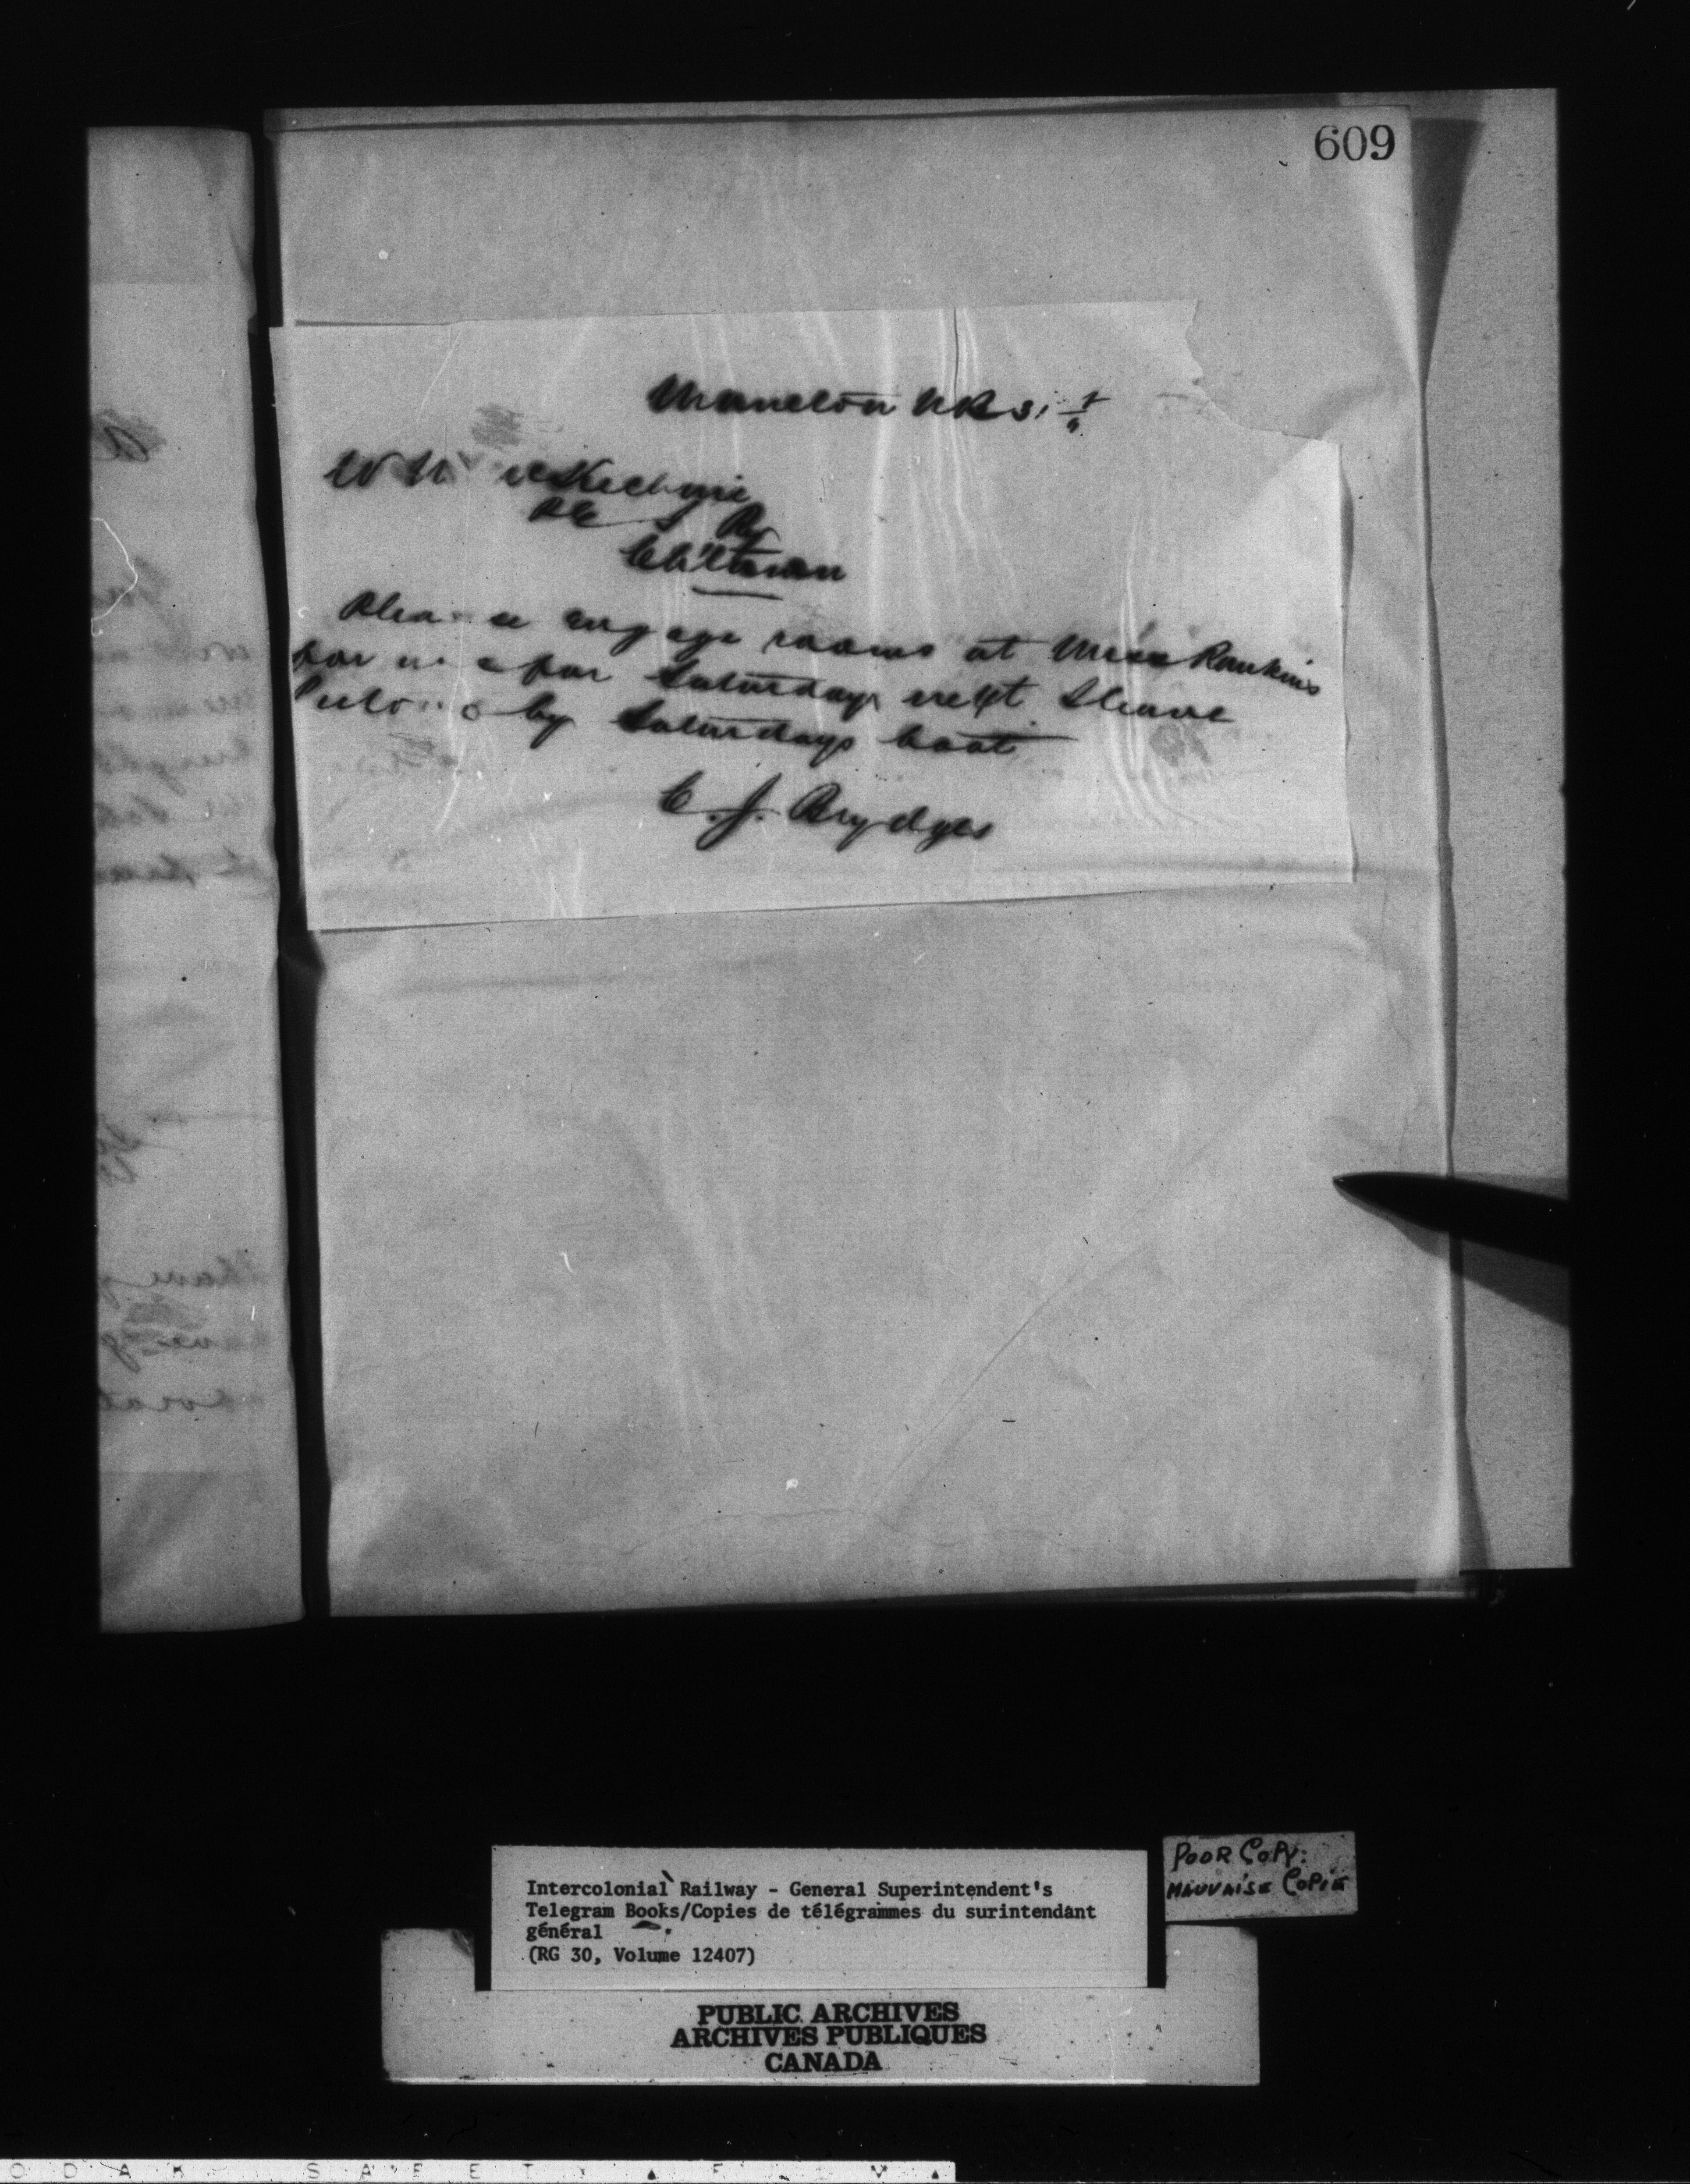 609
Moncton NB
W M McKechnie
P E I Ry
Ch'town
Please engage rooms at Miss Rankins
for me for Saturday next I leave
Pictou by Saturdays boat
C. J. Brydges
Intercolonial Railway - General Superintendent's
Telegram Books/Copies de télégrammes du surintendant
général
(RG 30, Volume 12407)
POOR COPY:
MAUVAISE COPIE
PUBLIC ARCHIVES
ARCHIVES PUBLIQUES
CANADA